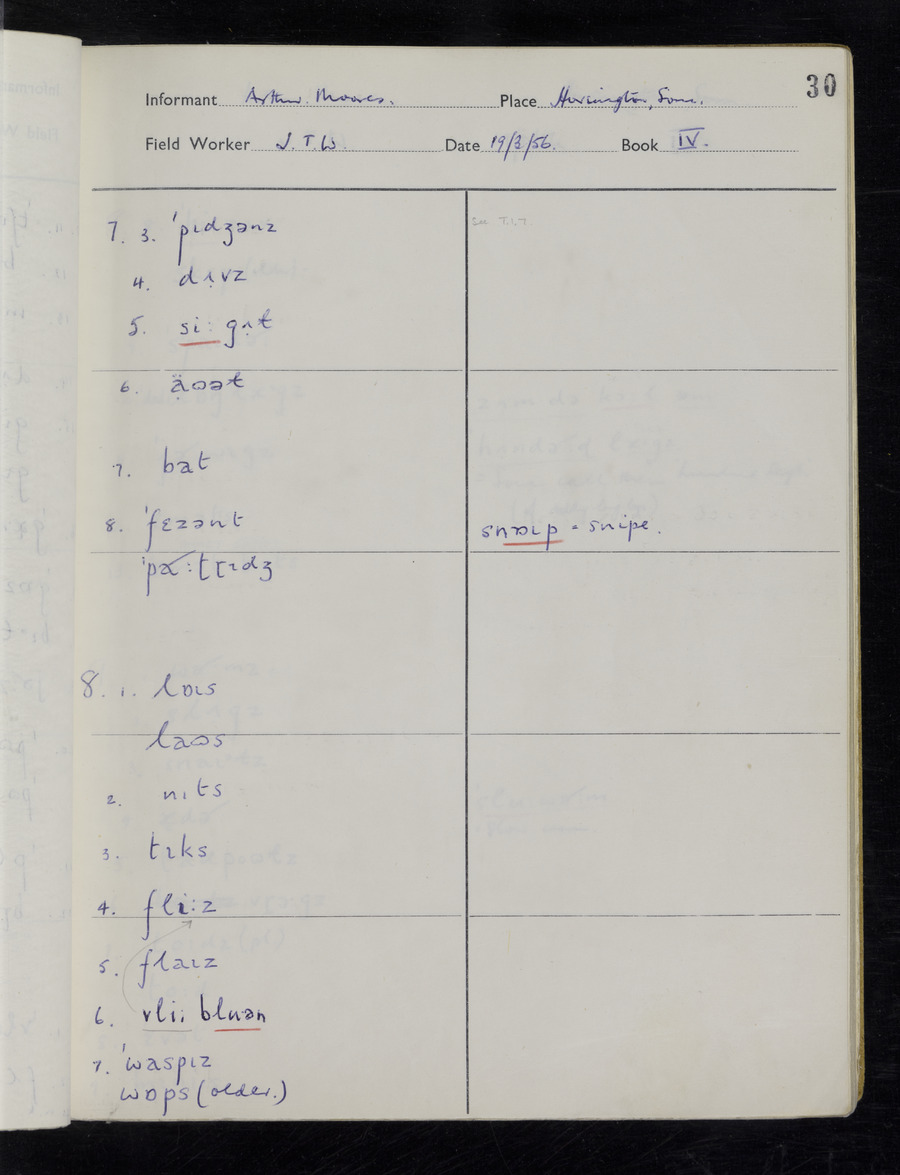 30
Informant Arthur Moores. Place Horsington, Som.
Field Worker J. T. W. Date 19/3/56. Book IV.
7. 3. ˈpɪdʒənz
4. dʌ̣vz
5. si: gʌ̣t
6. ạ̈ɷət
7. bat
8. ˈfɛzənt snɒɪp = snipe.
ˈpɑ:tɽɪdʒ
8. 1. lɒɪs
laɷs
2. nɪts
3. tɪks
4. fli:z
5. flaɪz
6. vli: bluən
7. ˈwaspɪz
wɒps (older.)